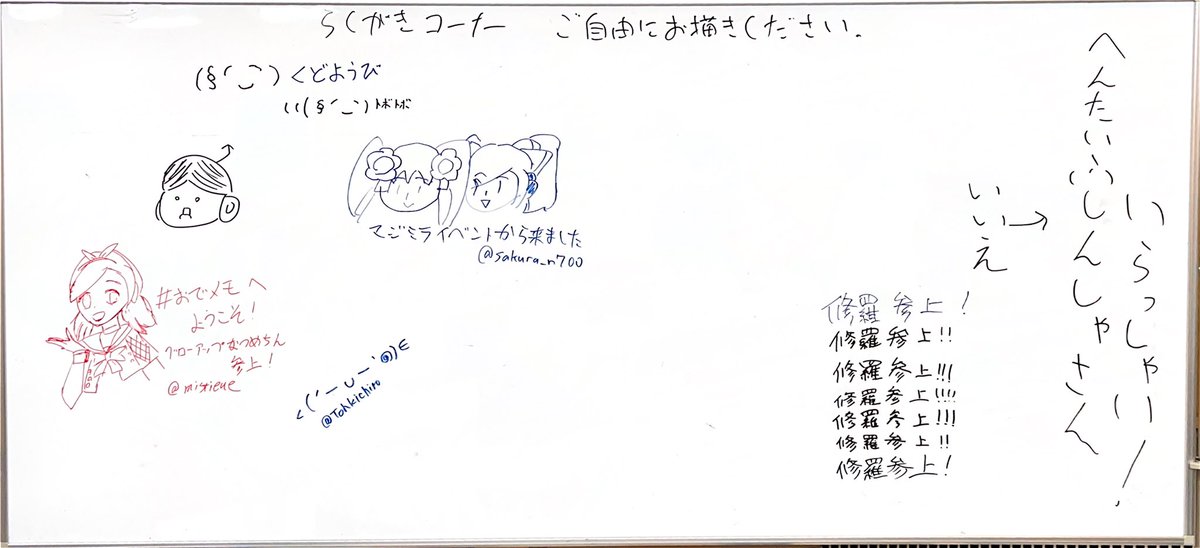 らくがきコーナー ご自由にお描きください。
(§´_⊃`) <どようび
(§´_⊃`)ﾄﾎﾞﾄﾎﾞ
マジミライベントから来ました
@sakura_n700
#おでメモへ
ようこそ!
参上!
<(´ー∪ー`@)∈
@Tohkichiro
修羅参上!
修羅参上!!
修羅参上!!!
修羅参上!!!!
修羅参上!!!
修羅参上!!
修羅参上!
いらっしゃい!
へんたいふしんしゃさん
いいえ→